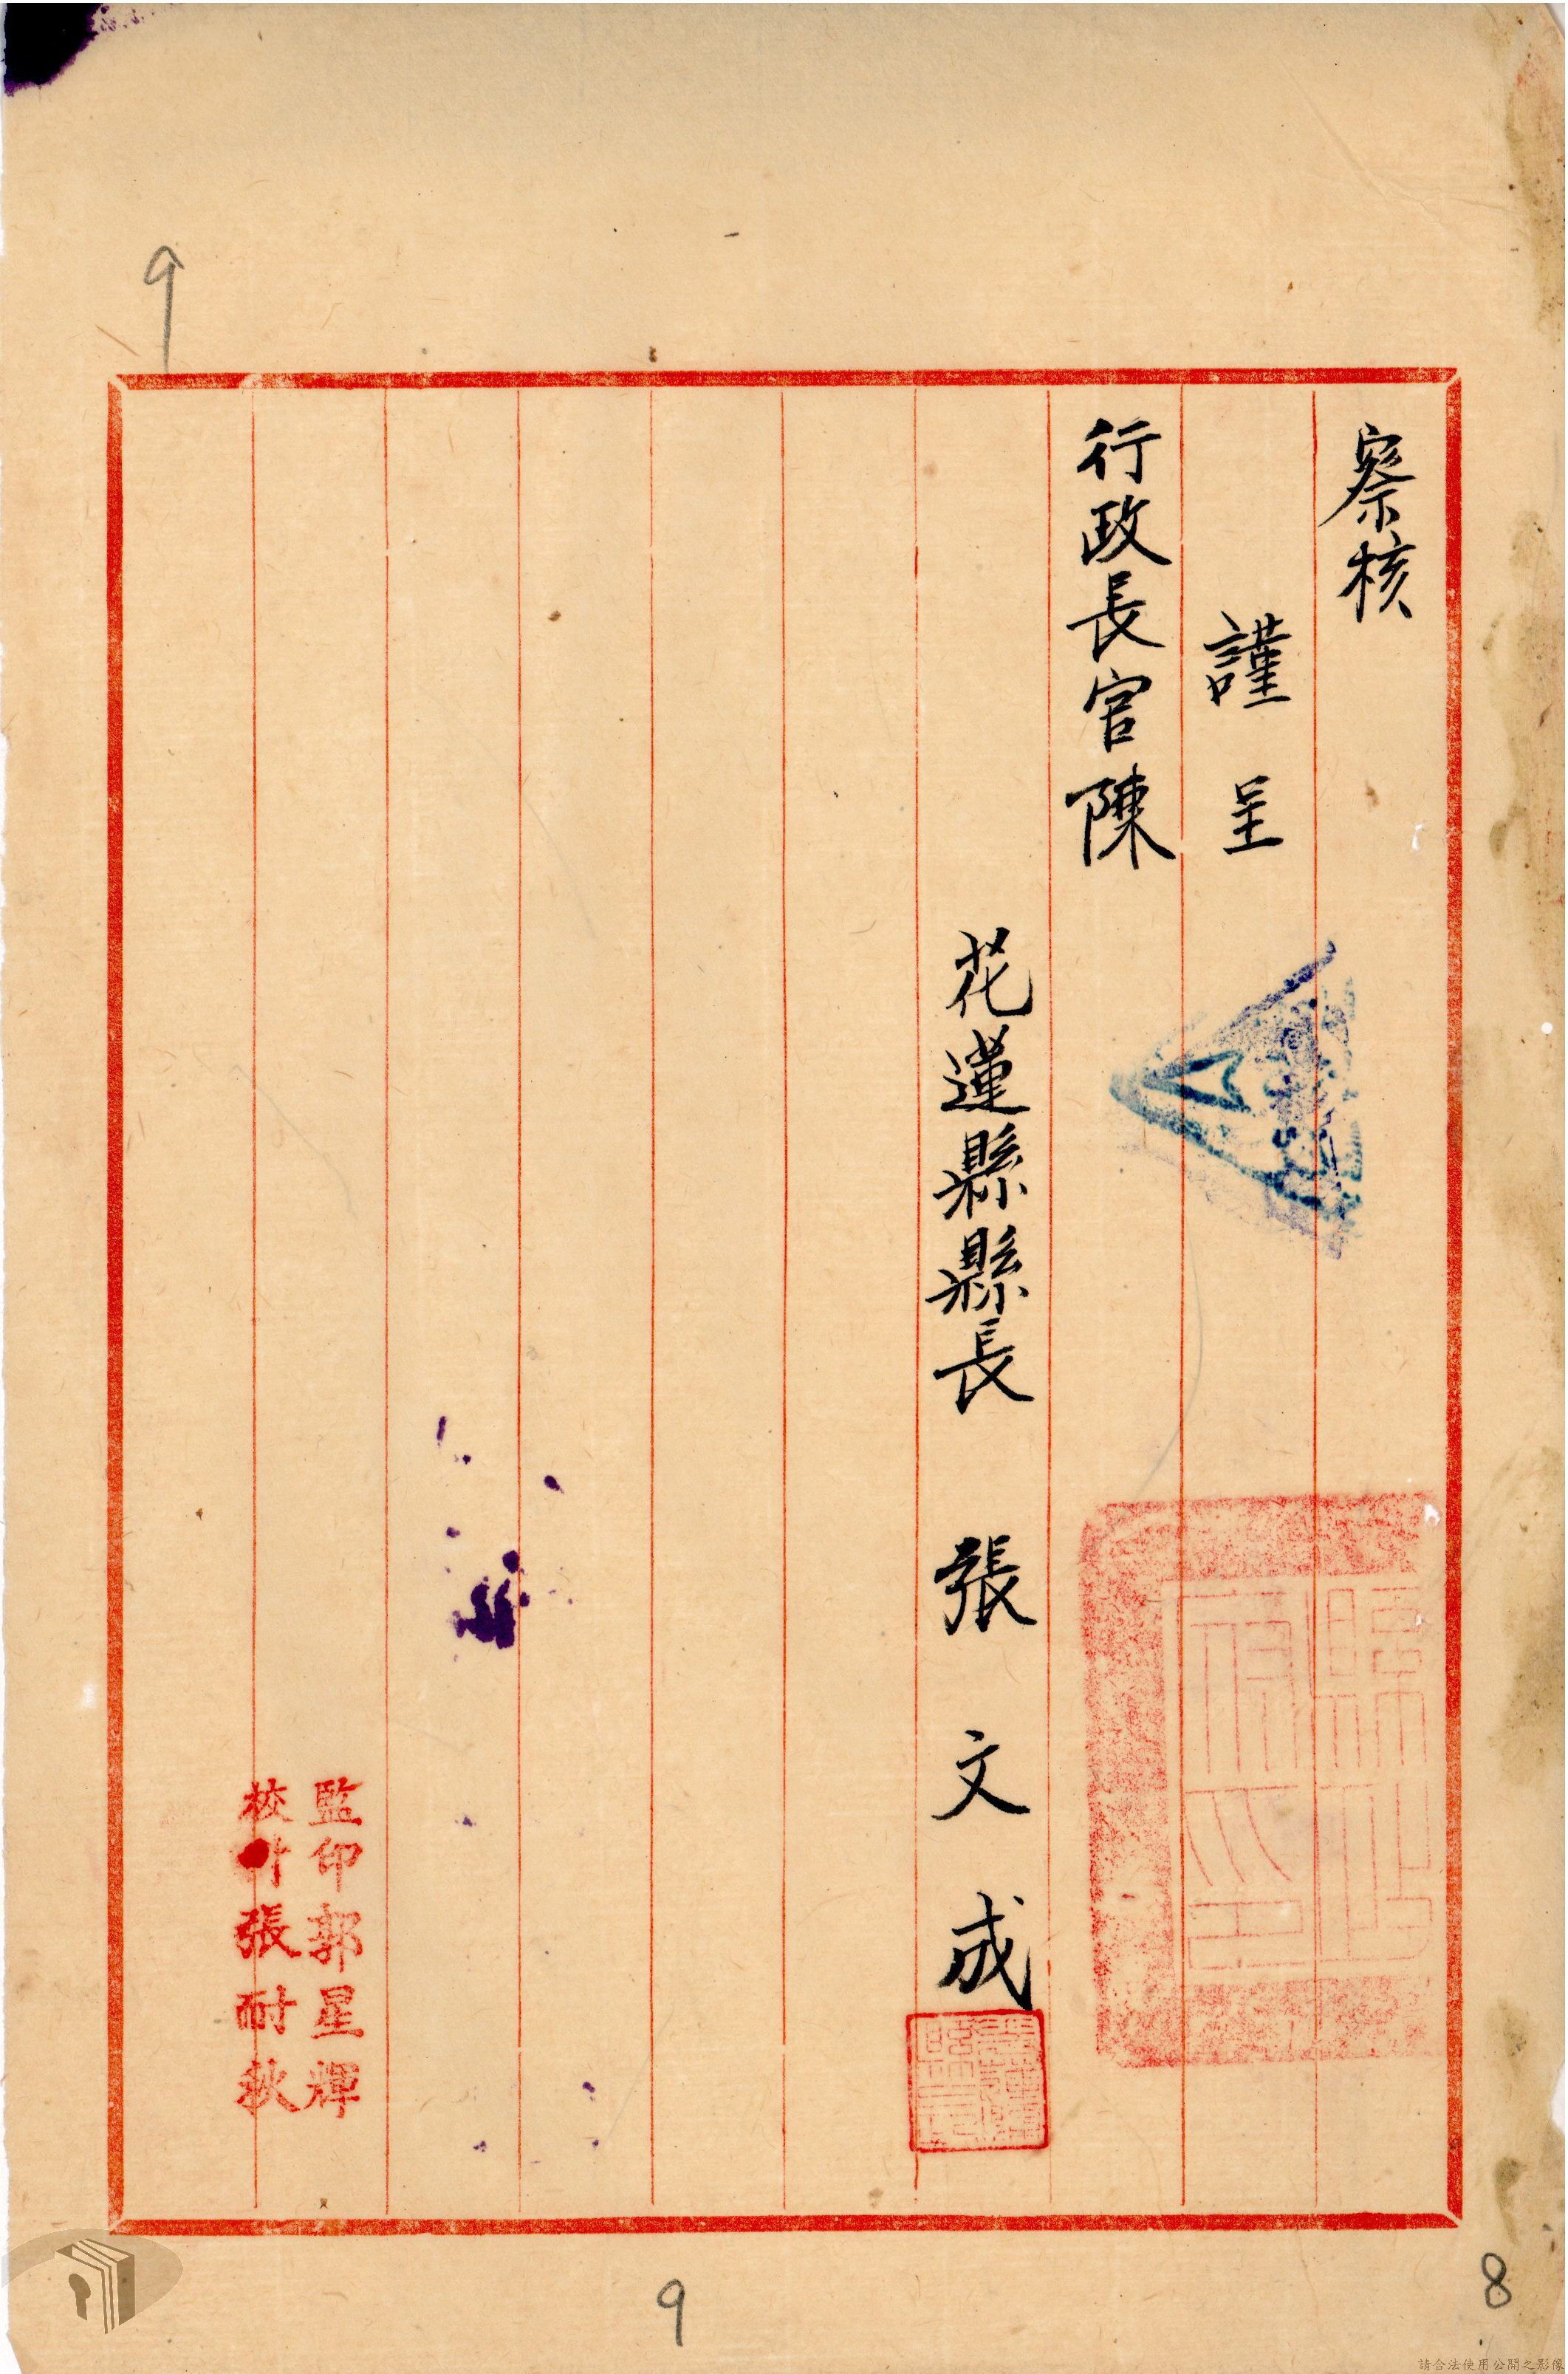 察核
謹呈
行政長官陳
花蓮縣縣長 張文成
監印郭星輝
校對張耐秋
9
9
8
請合法使用公開之影像